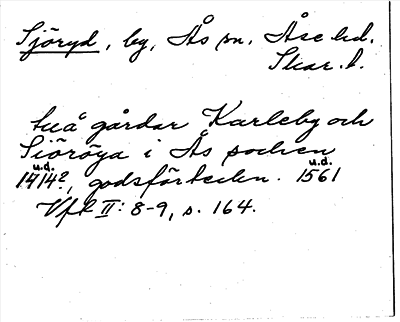 Sjöryd, by, Ås sn. Åse hd.
Skar. l.
tuå gårdar Karleby och
Siöröya i Ås sochen
u.d. u.d.
1414?, godsförteckn. 1561
Vfk II: 8-9, s. 164.